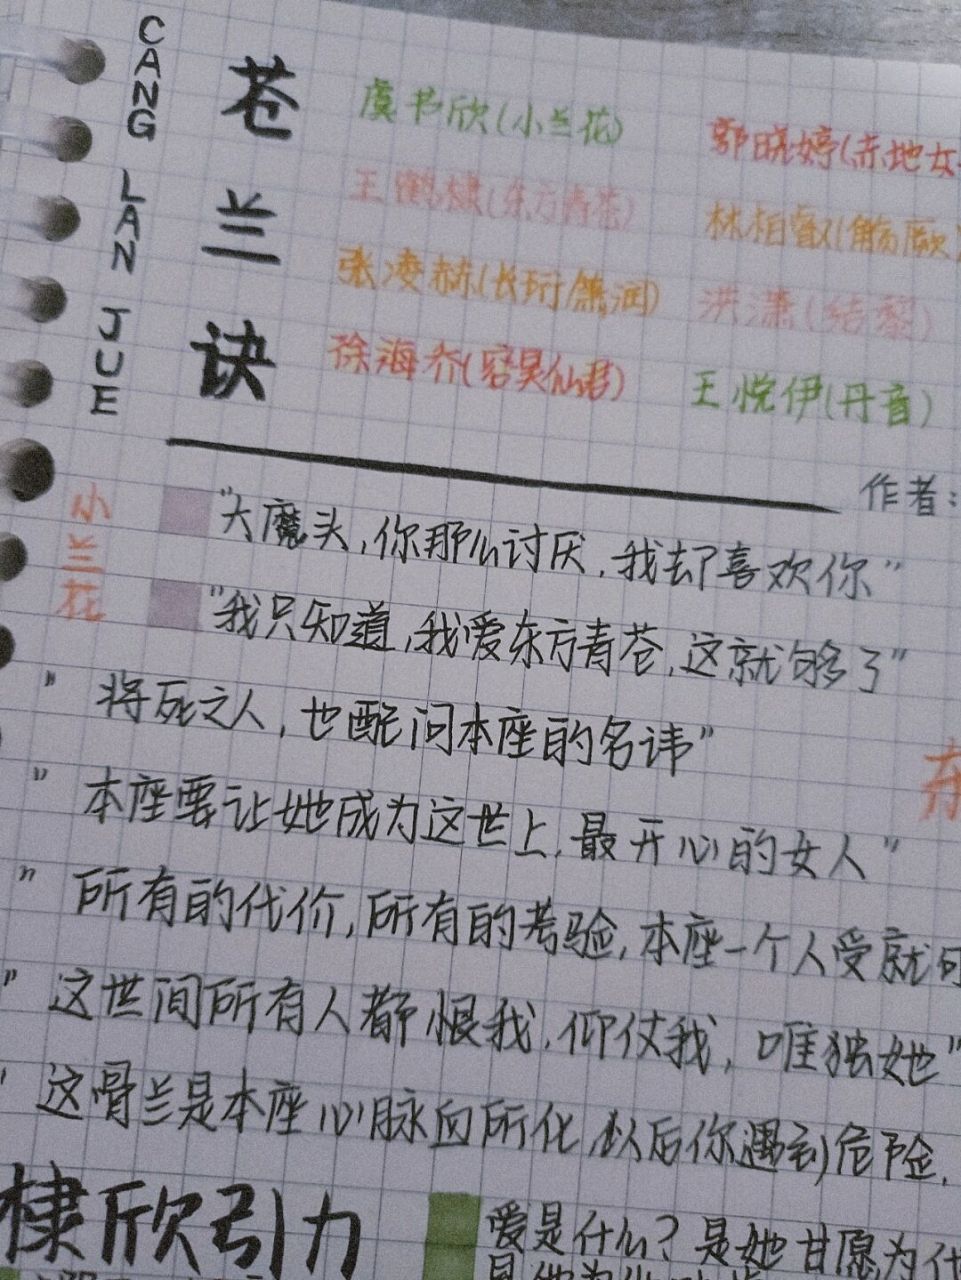 CANG
LAN
JUE
苍
兰
诀
虞书欣(小兰花)
郭晓婷(赤地女
王鹤棣(东方青苍)
林柏叡(觞阙)
张凌赫(长珩/萧润)
洪潇(结黎)
徐海乔(容昊仙君)
王悦伊(丹音)
作者:
小兰花
"大魔头,你那么讨厌,我却喜欢你"
"我只知道,我爱东方青苍,这就够了"
"将死之人,也配问本座的名讳"
东
"本座要让她成为这世上,最开心的女人"
"所有的代价,所有的考验,本座一个人受就可
"这世间所有人都恨我,仰仗我,唯独她"
"这骨兰是本座心脉血所化,以后你遇到危险,
棣欣引力
爱是什么?是她甘愿为代